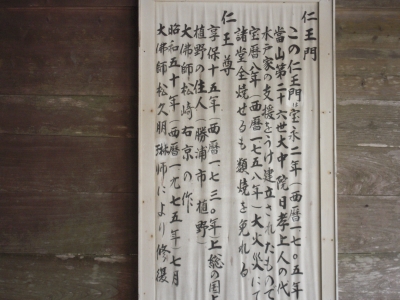 仁王門
この仁王門は宝永二年(西暦一七〇五年
當山第二十六世大中院日孝上人の代
水戸家の支援をうけ建立されたもので
宝暦八年(西暦一七五八年)大火災にて
諸堂全焼せるも類焼を免れる
仁王尊
享保十五年(西暦一七三〇年)上総の国
植野の住人(勝浦市植野)
大佛師松崎右京の作
昭和五十年(西暦一九七五年)七月
大佛師松久朋琳師により修復